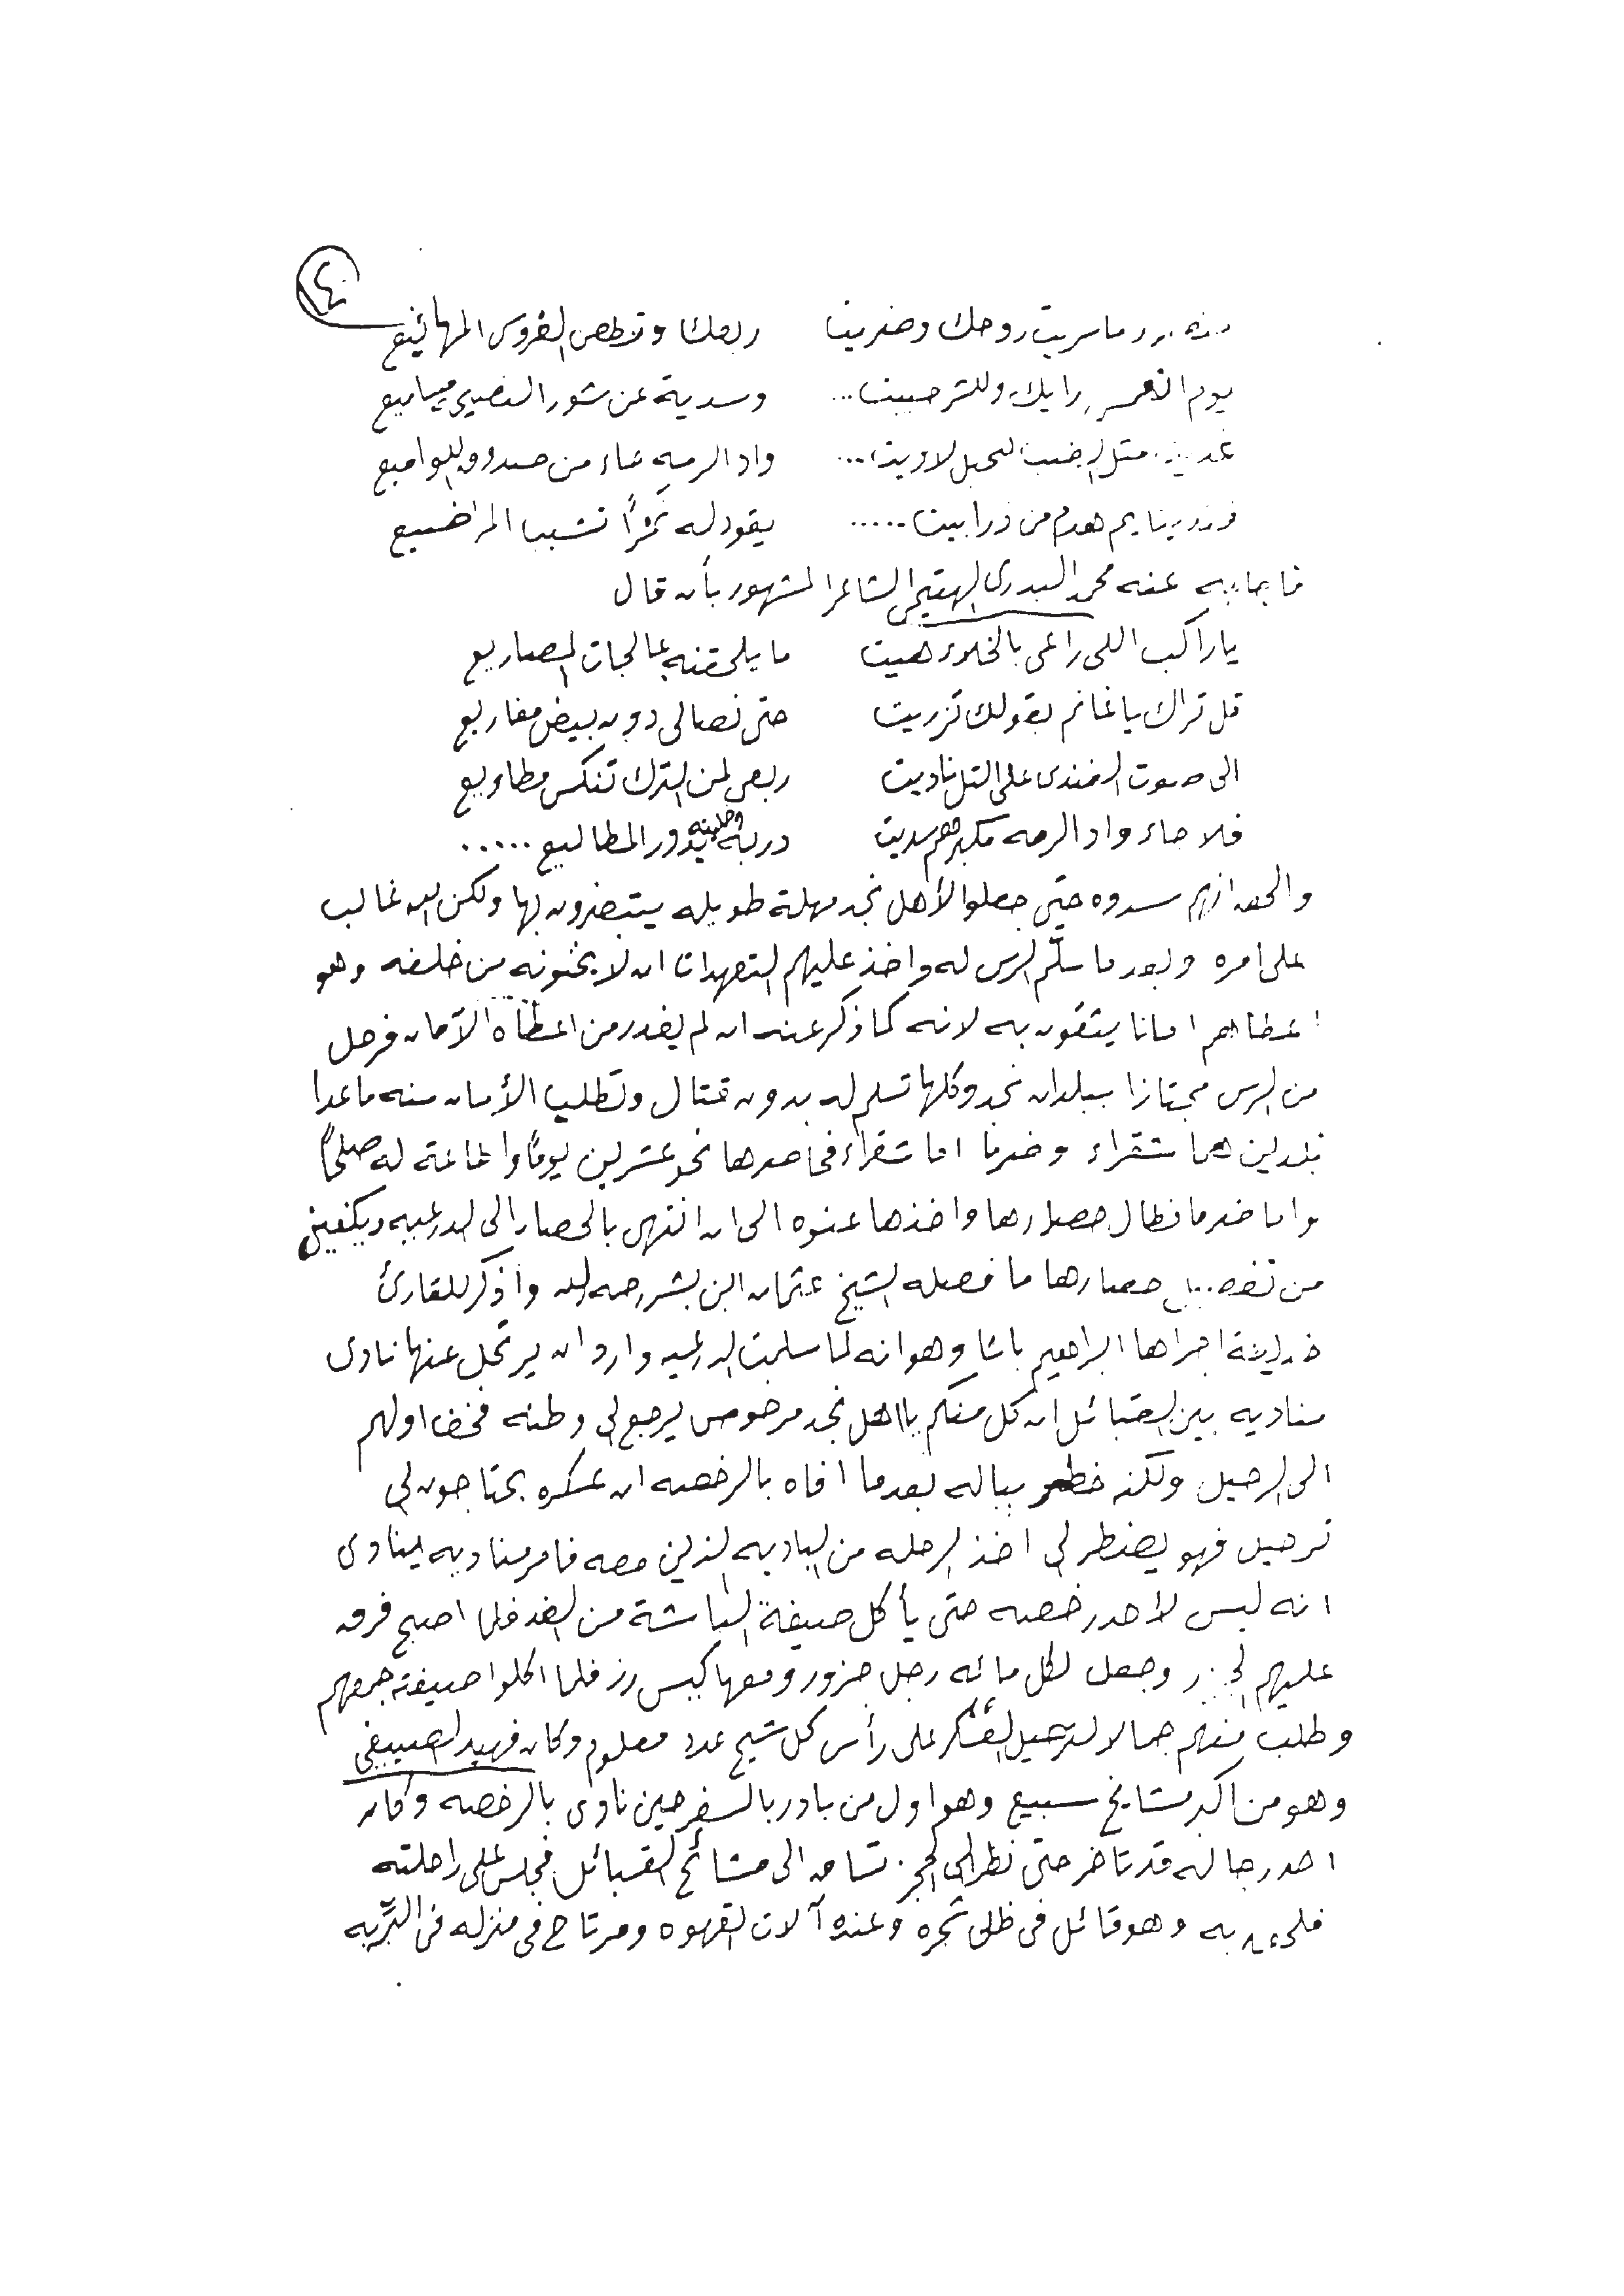 ٤
ما سريت روحك وضريت ربعك وتطعن الضروس المهانيع
يوم رايك وللشر حبيت... وسدية عن شور النصيحي مياميع
مثل لحبل لاوريت... واد الرمه غاء من صدوق اللواميع
هدم من ذرابيت..... يقود له تشبب المراضيع
فأجابه عنه محمد البدري الهقيمي الشاعر المشهور بأن قال
يا راكب اللي راعي بالخلاء هيت ما يلحقنه عالجات المصاريع
قل تراك يا غانم بقولك تزريت حتى نصالي دونه بيض مفاريع
الى صوت الرمندي على التل ناديت ربعي لمن الترك تنكس مطاويع
فلا جاء واد الرمه سديت دربه وخليته يدور المطاليع.....
والحق انهم سدوه حتى جعلوا لأهل نجد مهلة طويله يتبصرون بها ولكن الله غالب
على امره وبعد ما سلّم الرس له واخذ عليهم التعهدات ان لا يخونونه من خلفه وهو
اعطاهم امانا يثقون به لانه كما ذكر عنه ان لم يغدر من اعطاه الأمان فرحل
من الرس مجتازا ببلدان نجد وكلها تسلم له بدون قتال وتطلب الأمان منه ماعدا
بلدين هما شقراء وضرما اما شقراء فحاصرها نحو عشرين يوماً واطاعة له صلحاً
واما ضرما فطال حصارها واخذها عنوه الى ان انتهى بالحصار الى الدرعيه ويكفين
من تفصيل حصارها ما فصله الشيخ عثمان ابن بشر رحمه الله واذكر للقارئ
خديعة اجراها ابراهيم باشا وهو انه لما سلمت الدرعيه واراد ان يرتحل عنها نادى
مناديه بين القبائل ان كل منكم يا اهل نجد مرخوص ليرجع الى وطنه فخف اولهم
الى الرحيل ولكنه خطر بباله بعدما افاه بالرخصه ان عسكره يحتاجون الى
ترحيل فهو يضطر الى اخذ الرحله من الباديه الذين معه فأمر مناديه ينادى
انه ليس لاحد رخصه حتى يأكل ضيفة الباشة من الغد فلما اصبح فرق
عليهم الجزر وجعل لكل مائه رجل جزور ومعها كيس رز فلما اكلوا ضيفته جمعهم
وطلب منهم جمالا لترحيل العسكر على رأس كل شيخ عدد معلوم وكان فهيد الصييفي
وهو من اكبر مشايخ سبيع وهو اول من بادر بالسفر حين نادى بالرخصه وكان
احد رجاله قد تاخر حتى نظر الى الجزر تساق الى مشائخ القبائل فجلس على راحلته
فلحق به وهو قائل في ظل شجره وعنده آلات القهوه ومرتاح في منزله في التربه